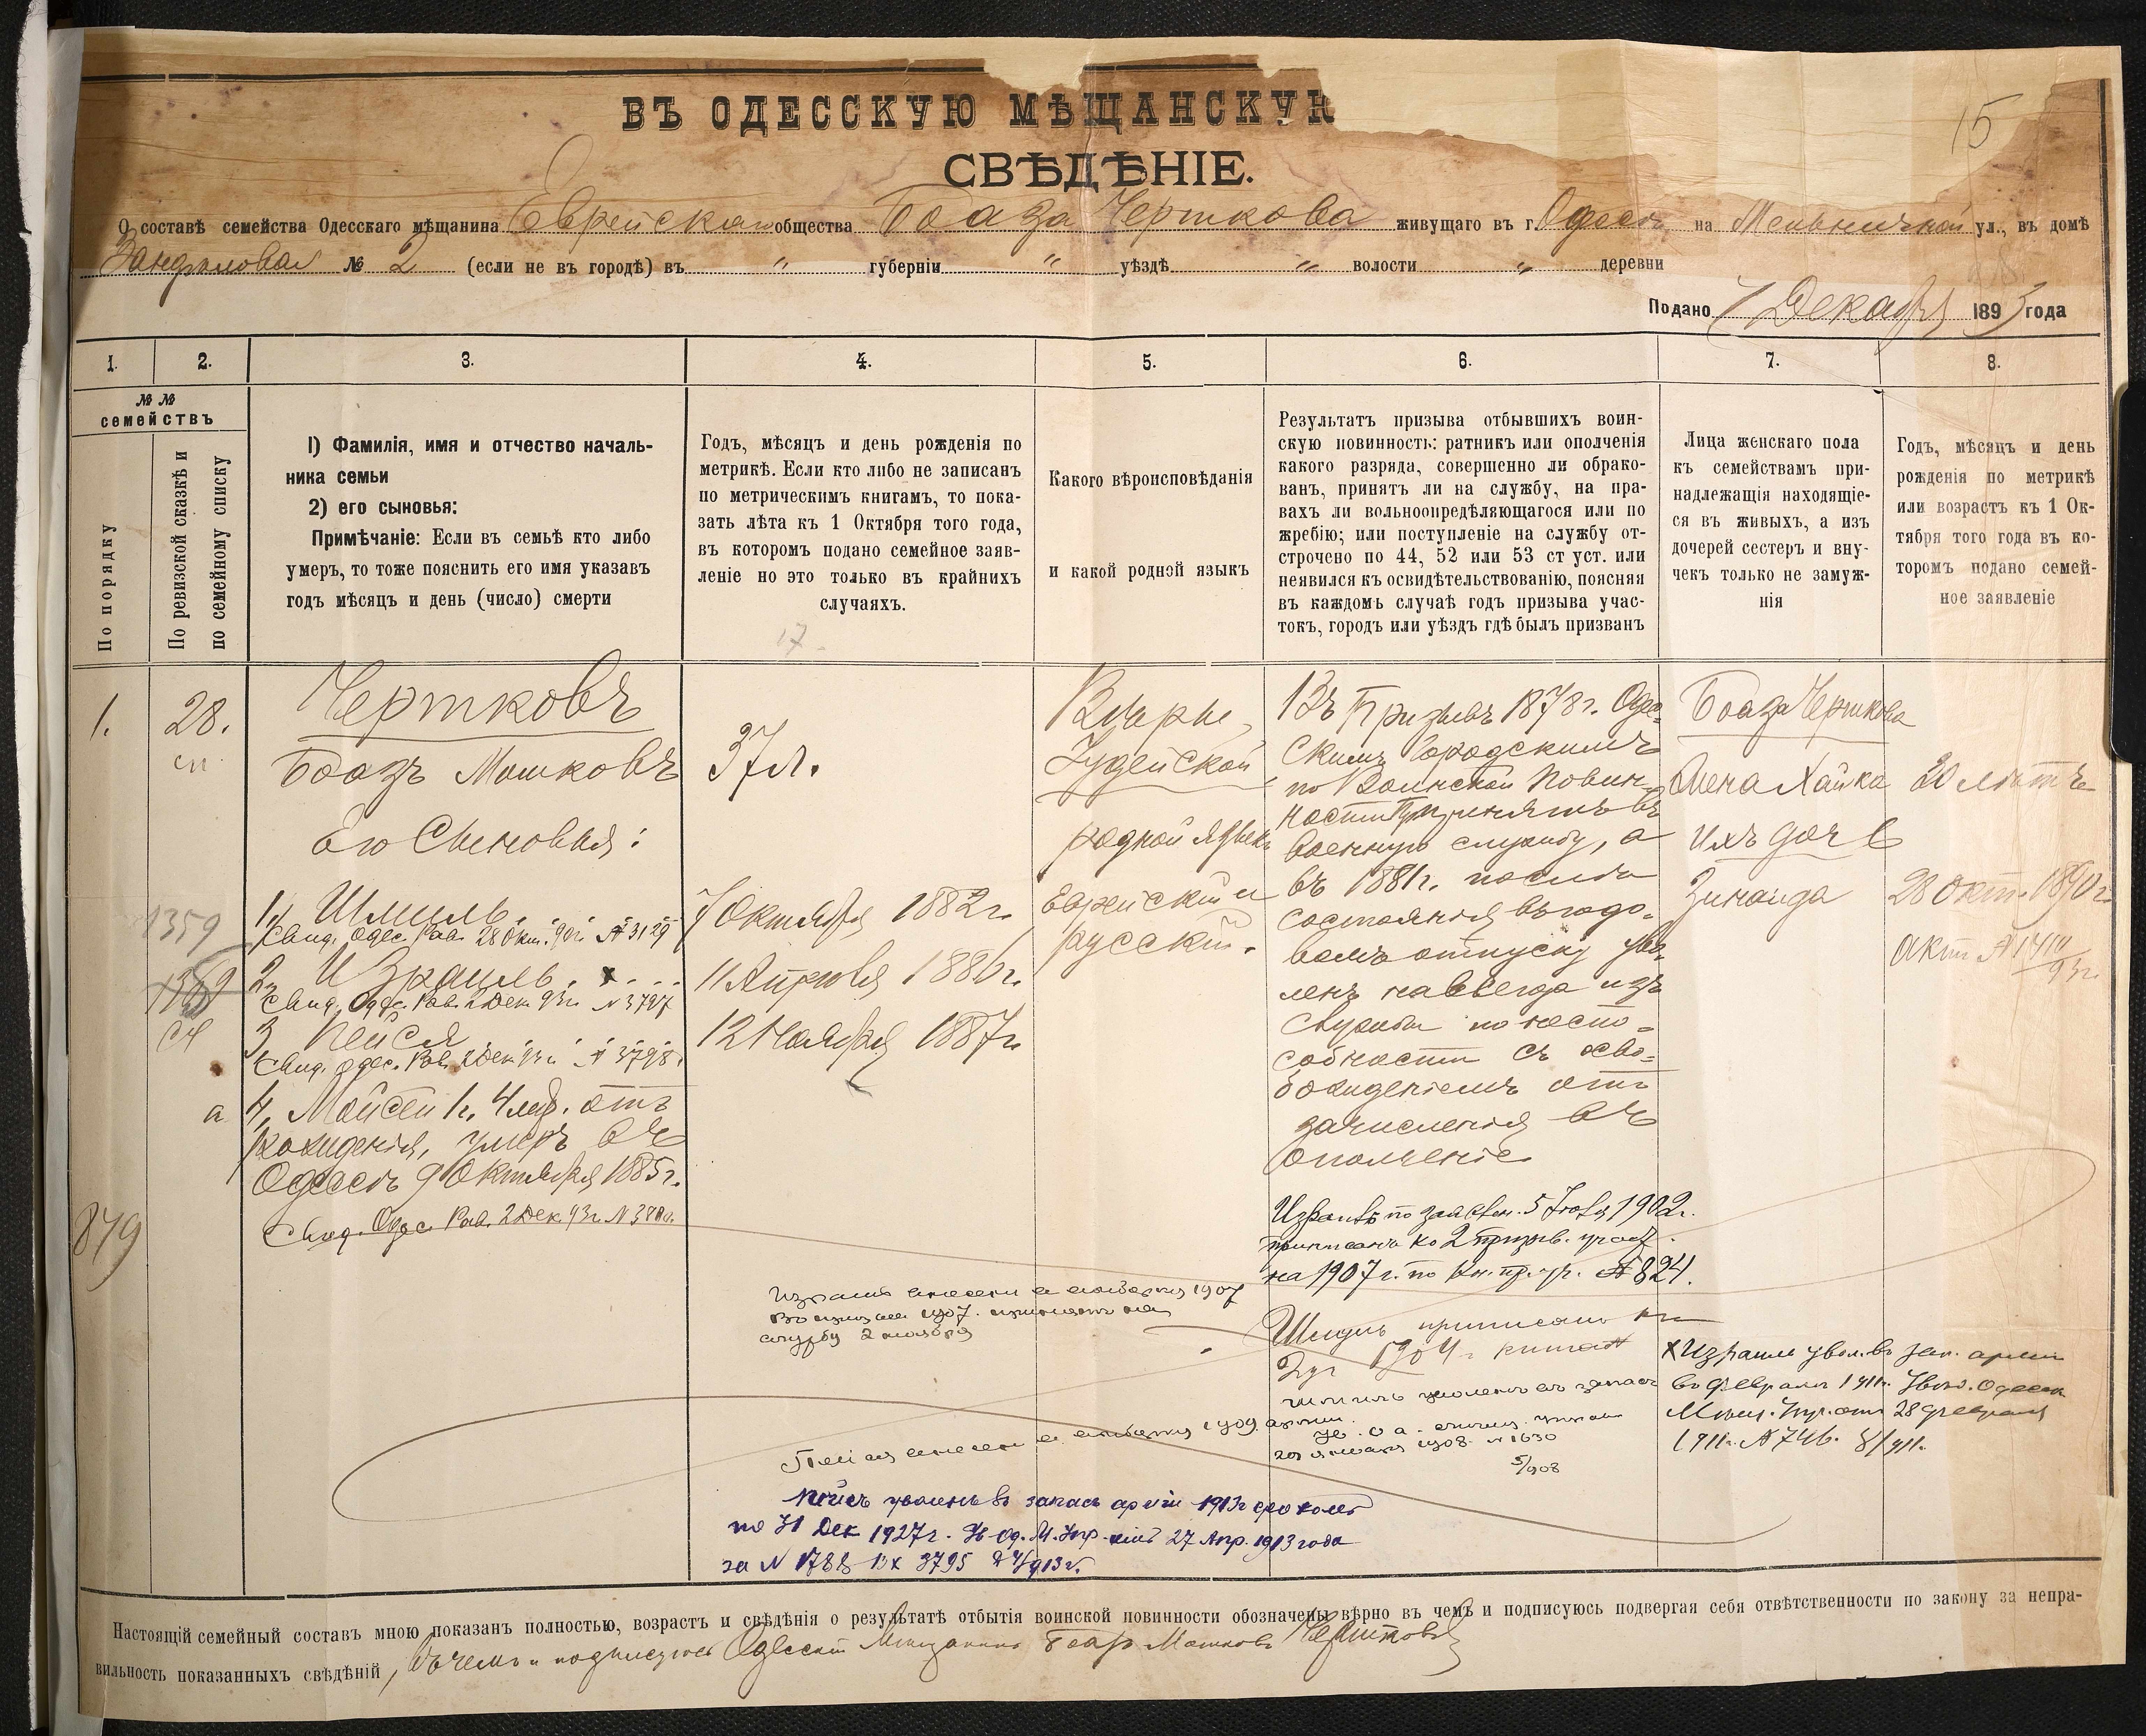 15
ВЪ ОДЕССКУЮ МѢЩАНСКУЮ
СВѢДѢНІЕ.
О составѣ семейства Одесскаго мѣщанина Еврейскаго общества Боаза Черткова живущаго въ г. Одессѣ на Мельничной ул., въ домѣ
№ 2 (если не въ городѣ) въ " губерніи " уѣздѣ " волости " деревни
Подано 7 Декабря 1893 года
1. 2. 3. 4. 5. 6. 7. 8.
№ №
семействъ
По порядку
По ревизской сказкѣ и
по семейному списку
1) Фамилія, имя и отчество началь-
ника семьи
2) его сыновья:
Примѣчаніе: Если въ семьѣ кто либо
умеръ, то тоже пояснить его имя указавъ
годъ мѣсяцъ и день (число) смерти
Годъ, мѣсяцъ и день рожденія по
метрикѣ. Если кто либо не записанъ
по метрическимъ книгамъ, то пока-
зать лѣта къ 1 Октября того года,
въ которомъ подано семейное заяв-
леніе но это только въ крайнихъ
случаяхъ.
17
Какого вѣроисповѣданія
и какой родной языкъ
Результатъ призыва отбывшихъ воин-
скую повинность: ратникъ или ополченія
какого разряда, совершенно ли обрако-
ванъ, принятъ ли на службу, на пра-
вахъ ли вольноопредѣляющагося или по
жребію; или поступленіе на службу от-
строчено по 44, 52 или 53 ст уст. или
неявился къ освидѣтельствованію, поясняя
въ каждомъ случаѣ годъ призыва учас-
токъ, городъ или уѣздъ гдѣ былъ призванъ
Лица женскаго пола
къ семействамъ при-
надлежащія находящіе-
ся въ живыхъ, а изъ
дочерей сестеръ и вну-
чекъ только не замуж-
нія
Годъ, мѣсяцъ и день
рожденія по метрикѣ
или возрастъ къ 1 Ок-
тября того года въ ко-
торомъ подано семей-
ное заявленіе
1.
28.
сп.
1359
879
Чертковъ
Боазъ Мошковъ
Его Сыновья:
1, Шмиль.
Свид. Одес. Рав. 28 Окт. 90г. № 3129
2, Израиль. х
Свид. Одес. Рав. 2 Дек. 93г. № 3797
3, Пейся
Свид. Одес. Рав. 2 Дек. 93г. № 3798.
а
4, Мойсей 1г. 4 мѣс. отъ
рожденія, умеръ въ
Одессѣ 9 Октября 1885г.
Свид. Одес. Рав. 2 Дек. 93г. №
37 л.
7 Октября 1882г.
11 Апрѣля 1886г.
12 Ноября 1887г
Вѣры
Іудейской
родной языкъ
Еврейскій и
русскій.
Въ Призывъ 1878г. Одес-
скимъ Городскимъ
по Воинской Повин-
ности Пр. принятъ въ
военную службу, а
въ 1881г. послѣ
состоянія въ годо-
вомъ отпуску уво-
ленъ навсегда изъ
службы по неспо-
собности съ осво-
божденіемъ отъ
зачисленія въ
ополченіе
Боаза Черткова
жена Хайка
ихъ дочь
Зинаида
20 лѣтъ
28 Окт. 1890г.
актъ №
Израиль по заявлен. 5 1902г.
приписанъ ко 2 призыв. участ.
на 1907 г. по кн. пр. уч. № 824.
Израиль внесенъ в 1907
1907. принятъ на
службу 2 ноября
Шмиль приписанъ къ
2 уч 1904 г.
Шмиль уволенъ въ запасъ
арміи.
1908 № 1630
5/908
х Израиль увол. въ зап. арміи
въ февралѣ 1911г. Увѣд. Одесск.
Мѣщ. Упр. отъ 28 февраля
1911г. № 746.
Пейся внесенъ в 1909
Пейсъ уволенъ въ запасъ арміи 1913г срокомъ
по 31 Дек 1927г. Ув. Од. М. Упр. 27 Апр. 1913 года
за № 1788 Вх 3795
Настоящій семейный составъ мною показанъ полностью, возрастъ и свѣдѣнія о результатѣ отбытія воинской повинности обозначены вѣрно въ чемъ и подписуюсь подвергая себя отвѣтственности по закону за непра-
вильность показанныхъ свѣдѣній, въ чемъ и подписуюсь Одесскій Мѣщанинъ Боазъ Мошковъ Чертковъ